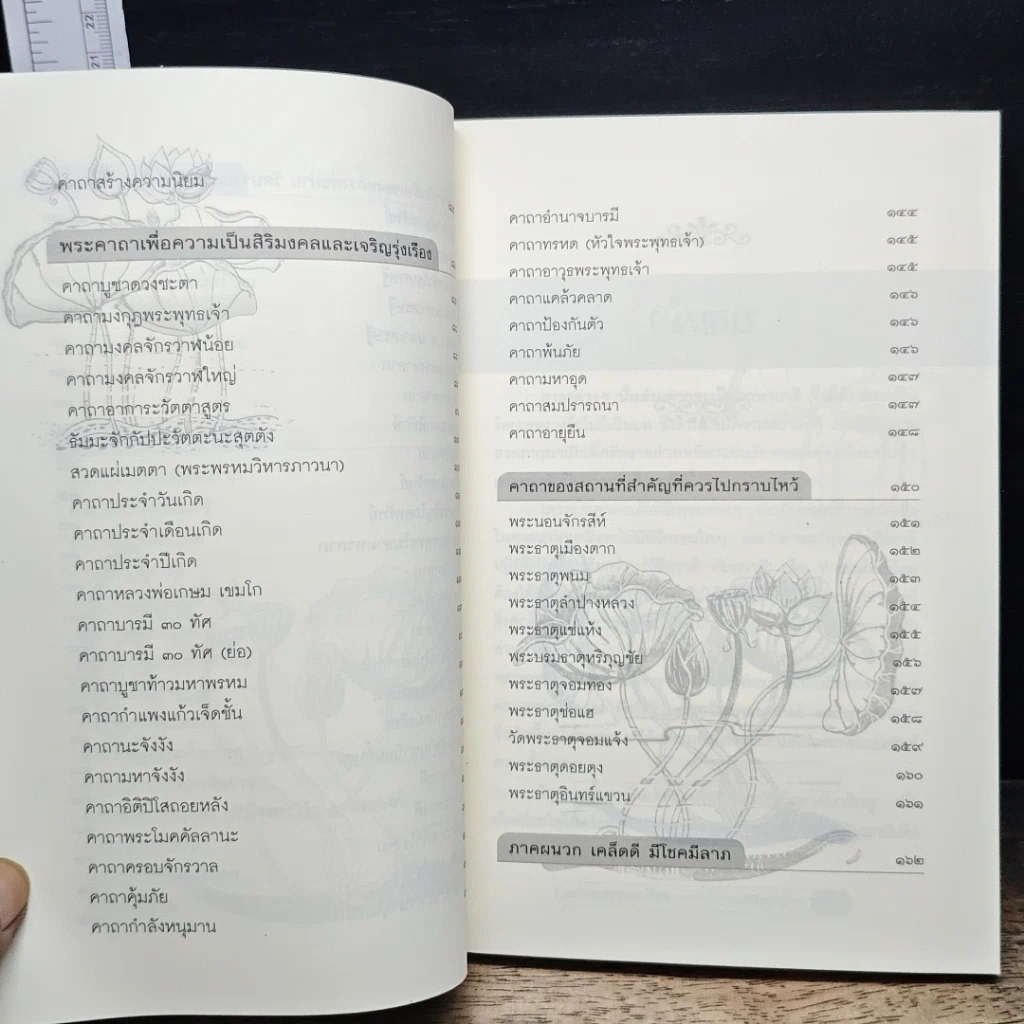 22
21
คาถาสร้างความนิยม
พระคาถาเพื่อความเป็นสิริมงคลและเจริญรุ่งเรือง
คาถาบูชาดวงชะตา
คาถามงกุฎพระพุทธเจ้า
คาถามงคลจักรวาฬน้อย
คาถามงคลจักรวาฬใหญ่
คาถาอาการะวัตตาสูตร
ธัมมะจักกัปปะวัตตะนะสุตตัง
สวดแผ่เมตตา (พระพรหมวิหารภาวนา)
คาถาประจำวันเกิด
คาถาประจำเดือนเกิด
คาถาประจำปีเกิด
คาถาหลวงพ่อเกษม เขมโก
คาถาบารมี ๓๐ ทัศ
คาถาบารมี ๓๐ ทัศ (ย่อ)
คาถาบูชาท้าวมหาพรหม
คาถากำแพงแก้วเจ็ดชั้น
คาถานะจังงัง
คาถามหาจังงัง
คาถาอิติปิโสถอยหลัง
คาถาพระโมคคัลลานะ
คาถาครอบจักรวาล
คาถาคุ้มภัย
คาถากำลังหนุมาน
คาถาอำนาจบารมี ๑๔๔
คาถาทรหด (หัวใจพระพุทธเจ้า) ๑๔๕
คาถาอาวุธพระพุทธเจ้า ๑๔๕
คาถาแคล้วคลาด ๑๔๖
คาถาป้องกันตัว ๑๔๖
คาถาพ้นภัย ๑๔๖
คาถามหาอุด ๑๔๗
คาถาสมปรารถนา ๑๔๗
คาถาอายุยืน ๑๔๘
คาถาของสถานที่สำคัญที่ควรไปกราบไหว้ ๑๕๐
พระนอนจักรสีห์ ๑๕๑
พระธาตุเมืองตาก ๑๕๒
พระธาตุพนม ๑๕๓
พระธาตุลำปางหลวง ๑๕๔
พระธาตุแช่แห้ง ๑๕๕
พระบรมธาตุหริภุญชัย ๑๕๖
พระธาตุจอมทอง ๑๕๗
พระธาตุช่อแฮ ๑๕๘
วัดพระธาตุจอมแจ้ง ๑๕๙
พระธาตุดอยตุง ๑๖๐
พระธาตุอินทร์แขวน ๑๖๑
ภาคผนวก เคล็ดดี มีโชคมีลาภ ๑๖๒